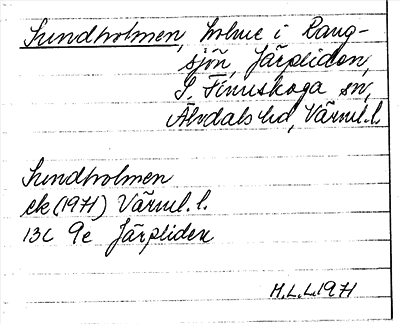 Sundholmen, holme i Rang-
sjön, Järpliden,
S. Finnskoga sn,
Älvdals hd, Värml. l.
Sundholmen
ek (1971) Värml. l.
13C 9e Järpliden
H.L.L. 1971